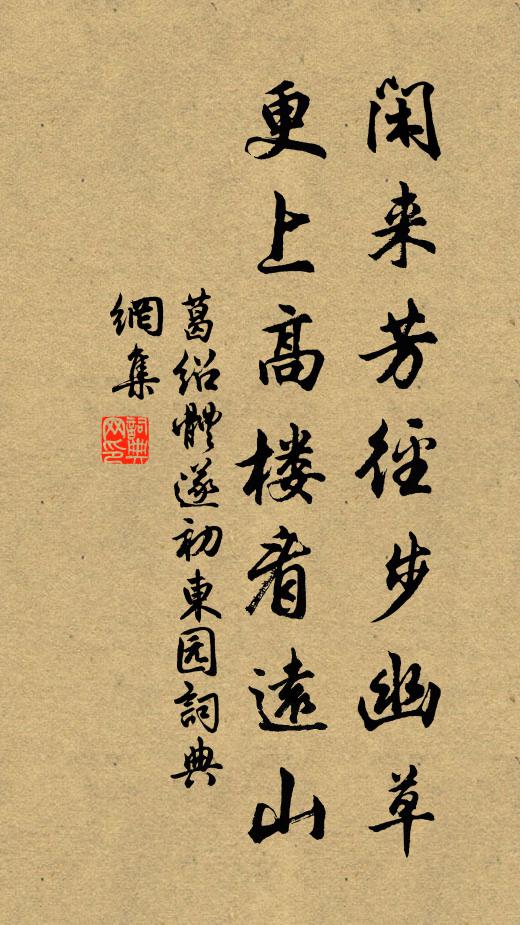 闲来芳径步幽草
更上高楼看远山
葛绍體遂初東园詞典
網集
詞典网印